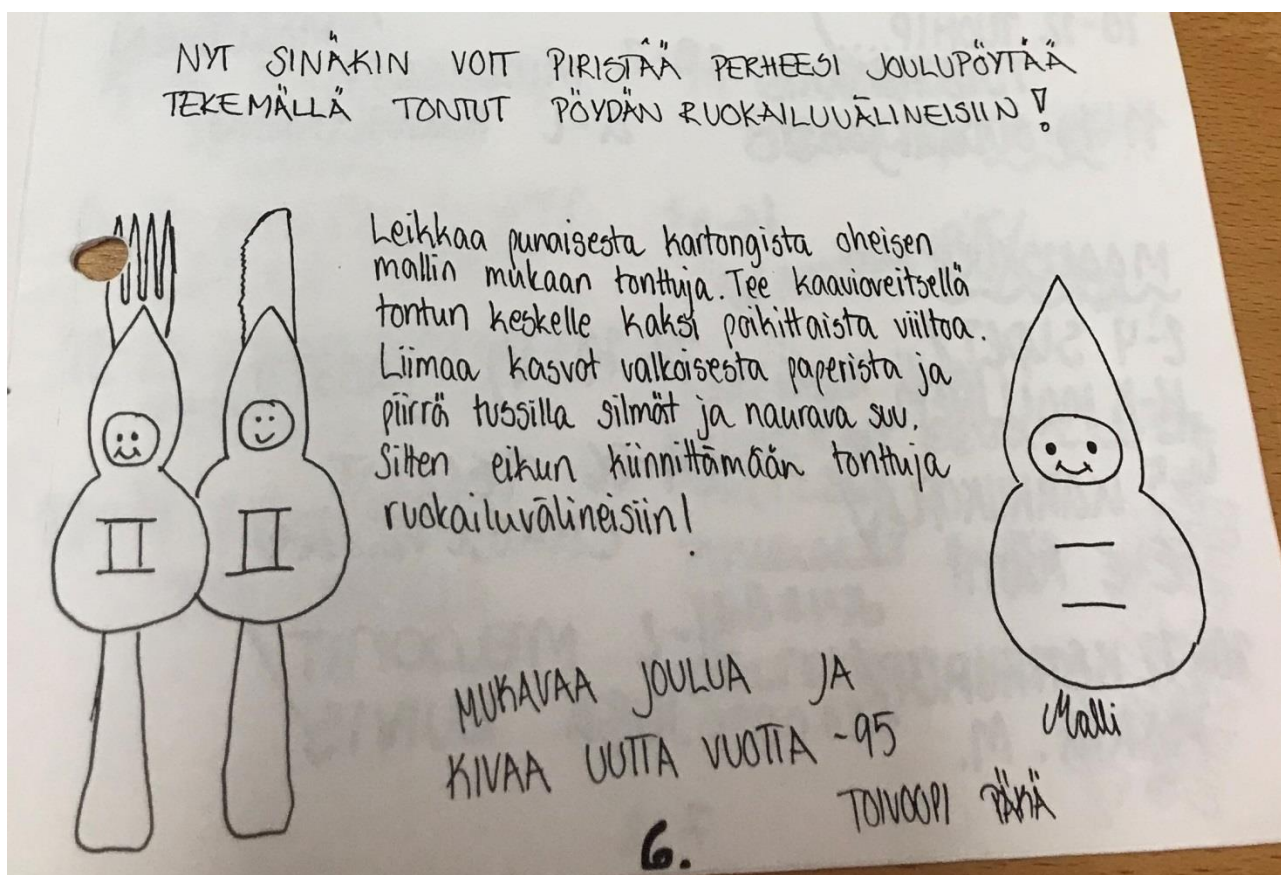 NYT SINÄKIN VOIT PIRISTÄÄ PERHEESI JOULUPÖYTÄÄ
TEKEMÄLLÄ TONTUT PÖYDÄN RUOKAILUVÄLINEISIIN!
Leikkaa punaisesta kartongista oheisen
mallin mukaan tonttuja. Tee kaavioveitsellä
tontun keskelle kaksi poikittaista viiltoa.
Liimaa kasvot valkoisesta paperista ja
piirrä tussilla silmät ja naurava suu.
Sitten eikun kiinnittämään tonttuja
ruokailuvälineisiin!
Malli
MUKAVAA JOULUA JA
KIVAA UUTTA VUOTTA -95
TOIVOOPI PÄKÄ
6.